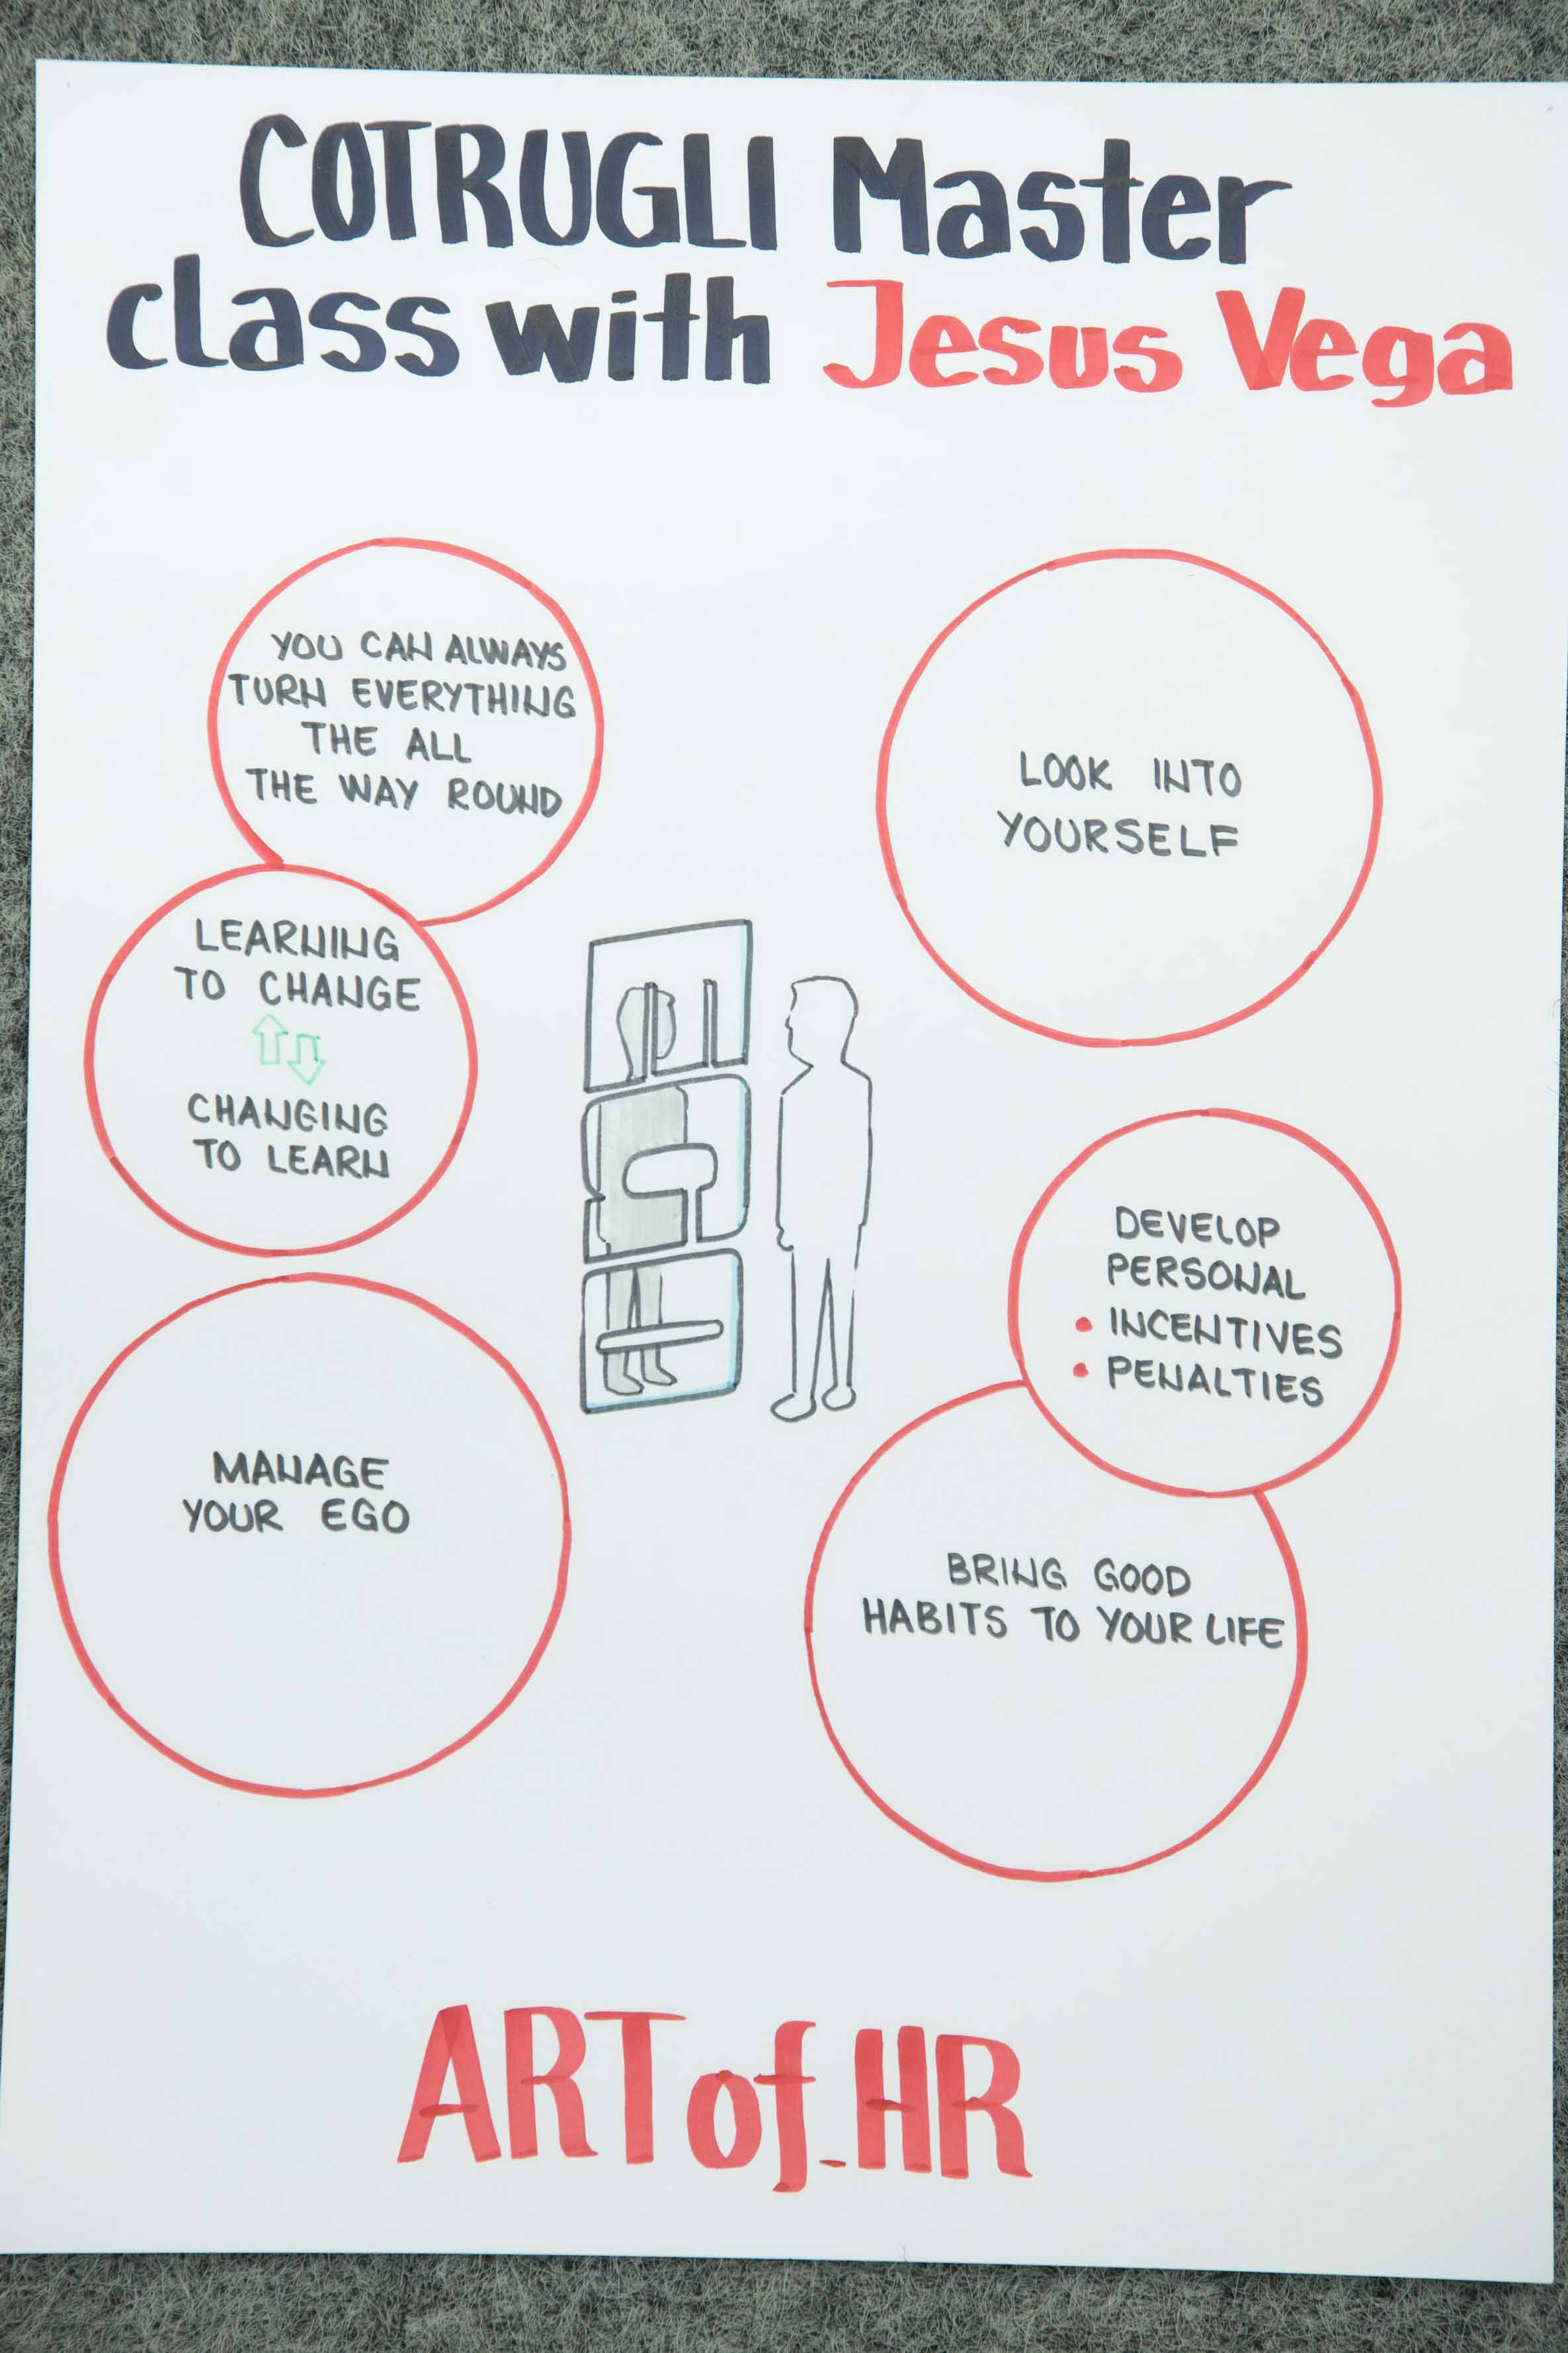 COTRUGLI Master
class with Jesus Vega
YOU CAN ALWAYS
TURN EVERYTHING
THE ALL
THE WAY ROUND
LEARNING
TO CHANGE
CHANGING
TO LEARN
MANAGE
YOUR EGO
LOOK INTO
YOURSELF
DEVELOP
PERSONAL
• INCENTIVES
• PENALTIES
BRING GOOD
HABITS TO YOUR LIFE
ART of_HR